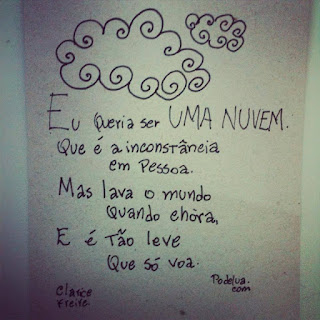 Eu queria ser UMA NUVEM.
Que é a inconstância
em pessoa.
Mas lava o mundo
Quando chora,
E é Tão leve
Que só voa.
Clarice
Freire
Podelua.
com